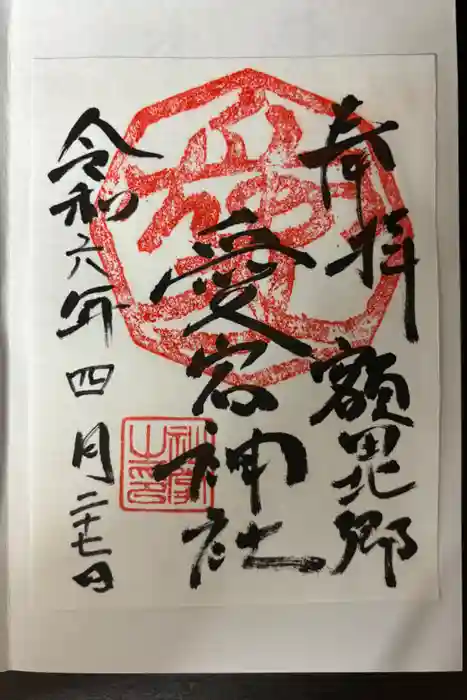 奉拝　額田北郷
愛宕神社
令和六年四月二十七日